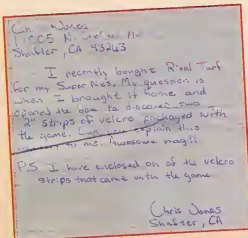 Chris Jones
N.
Shafter, CA 93263
I recently bought Rival Turf
for my Super Nes. My question is
when I brought it home and
opened the box to discover two
2" strips of velcro packaged with
the game. Can you explain this
to me. Awesome mag!!
P.S. I have enclosed on of the velcro
strips that came with the game.
Chris Jones
Shafter, CA